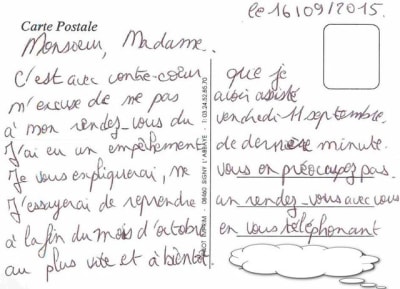 le 16/09/2015.
Carte Postale
Monsieur, Madame.
C'est avec contre-coeur que je
m'excuse de ne pas avoir assisté
à mon rendez-vous du vendredi 11 septembre.
J'ai eu un empêchement de dernière minute.
Je vous expliquerai, ne vous en préocupez pas.
J'essayerai de reprendre un rendez-vous avec vous
à la fin du mois d'octobre en vous téléphonant
au plus vite et à bientôt.
08460 SIGNY L'ABBAYE - T : 03.24.52.85.70